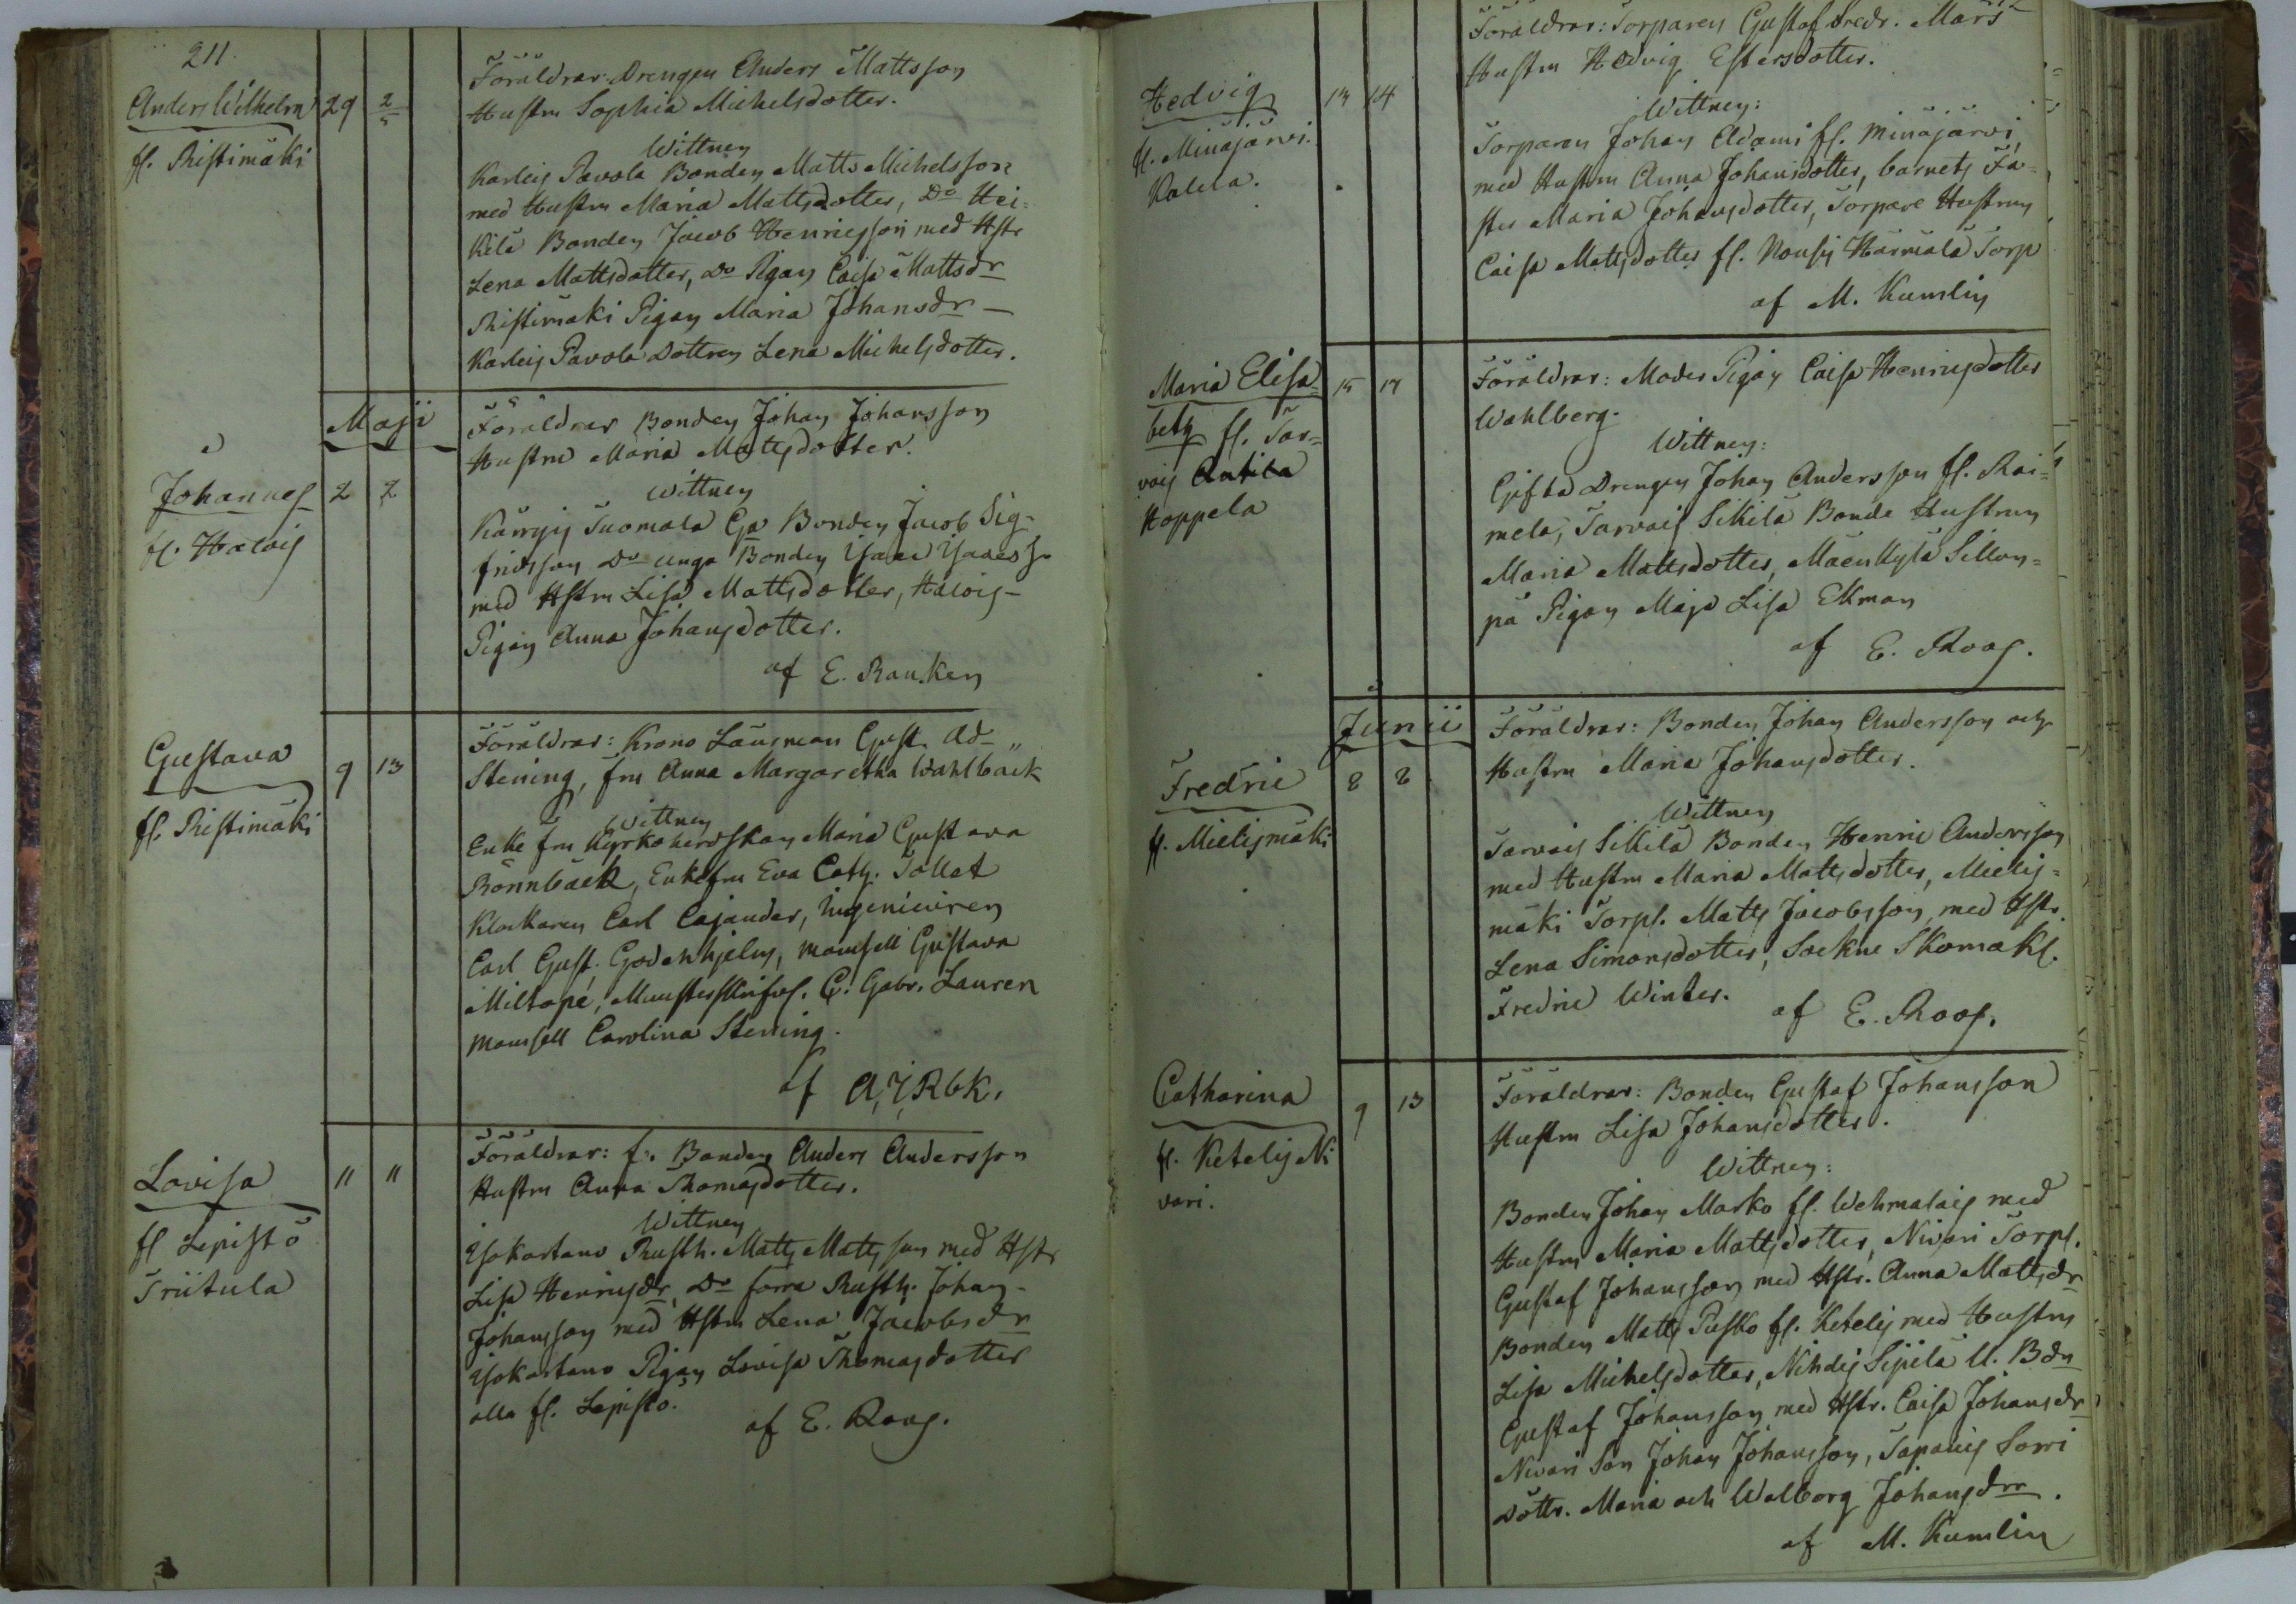 211.
Anders Wilhelm 29 2/5
fr. Ristimäki
Föräldrar: Drengen Anders Mattsson
Hustru Sophia Michelsdotter.
Wittnen
Karleis Pavola Bonden Matts Michelsson
med Hustru Maria Mattsdotter, Do Hei-
kilä Bonden Jacob Henricsson med Hstr
Lena Mattsdotter, Do Pigan Caisa Mattsdr
Ristimäki Pigan Maria Johansdr
Karleis Pavola Dottren Lena Michelsdotter.
Maji
Johannes 2 2
fr. Halois
Föräldrar Bonden Johan Johansson
Hustru Maria Mattsdotter.
Wittnen
Kärrys Tuomala Ga Bonden Jacob Sig-
fridsson Do unga Bonden Isaac Isacss.
med Hstru Lisa Mattsdotter, Halois
Pigan Anna Johansdotter.
af E. Ranken
Gustava 9 13
fr. Ristimäki
Föräldrar: Krono Länsman Gust. Ad-
Stening, fru Anna Margaretha Wahlbäck
Wittnen
Enke fru Kyrkoherdskan Maria Gustava
Rönnbäck, Enkefru Eva Cath. Tollet
Klockaren Carl Cajander, Ingenieuren
Carl Gust. Godenhjelm, Mamsell Gustava
Miltopé, Munsterskrifv. C. Gabr. Lauren
Mamsell Carolina Stening.
af A, J, Rbk.
Lovisa 11 11
fr Lepistö
Triitula
Föräldrar: f. Bonden Anders Andersson
Hustru Anna Thomasdotter.
Wittnen
Isokartano Rusth. Matts Mattsson med Hstr
Lisa Henricsdr, Do förra Rusth. Johan
Johansson med Hstru Lena Jacobsdr
Isokartano Pigan Lovisa Thomasdotter
alla fr. Lepistö.
af E. Roos.
Hedvig 13 14
fr. Minäjärvi
Kalela.
Föräldrar: Torparen Gustaf Fredr. Mars
Hustru Hedvig Estersdotter.
Wittnen:
Torparen Johan Adami fr. Minäjärvi,
med Hustru Anna Johansdotter, barnets Fa-
ster Maria Johansdotter, Torpare Hustrun
Caisa Mattsdotter fr. Nousis Härmälä Torp
af M. Kumlin
Maria Elisa- 15 17
beth fr. Tar-
vais Antila
Hoppela
Föräldrar: Moder Pigan Caisa Henricsdotter
Wahlberg.
Wittnen:
Gifta Drengen Johan Andersson fr. Rai-
mela, Tarvais Sikilä Bonde Hustrun
Maria Mattsdotter, Mäenkylä Sillan-
pä Pigan Maja Lisa Ekman
af E. Roos.
Junii
Fredric 8 8
fr. Mielismäki
Föräldrar: Bonden Johan Andersson och
Hustru Maria Johansdotter.
Wittnen
Tarvais Sikilä Bonden Henric Andersson
med Hustru Maria Mattsdotter, Mielis-
mäki Torpr. Matts Jacobsson med Hstr.
Lena Simonsdotter, Sockne Skomakr.
Fredric Winter.
af E. Roos.
Catharina 9 13
fr. Ketelis Ni
vari.
Föräldrar: Bonden Gustaf Johansson
Hustru Lisa Johansdotter.
Wittnen:
Bonden Johan Marko fr. Wehmalais med
Hustru Maria Mattsdotter, Nivari Torpr.
Gustaf Johansson med Hstr. Anna Mattsdr
Bonden Matts Pusko fr. Ketelis med Hustru
Lisa Michelsdotter, Nihdis Sipilä U. Bdn
Gustaf Johansson med Hstr. Caisa Johansdr
Nivari Son Johan Johansson, Tapanis Sorri
Döttr. Maria och Walborg Johansdrr.
af M. Kumlin